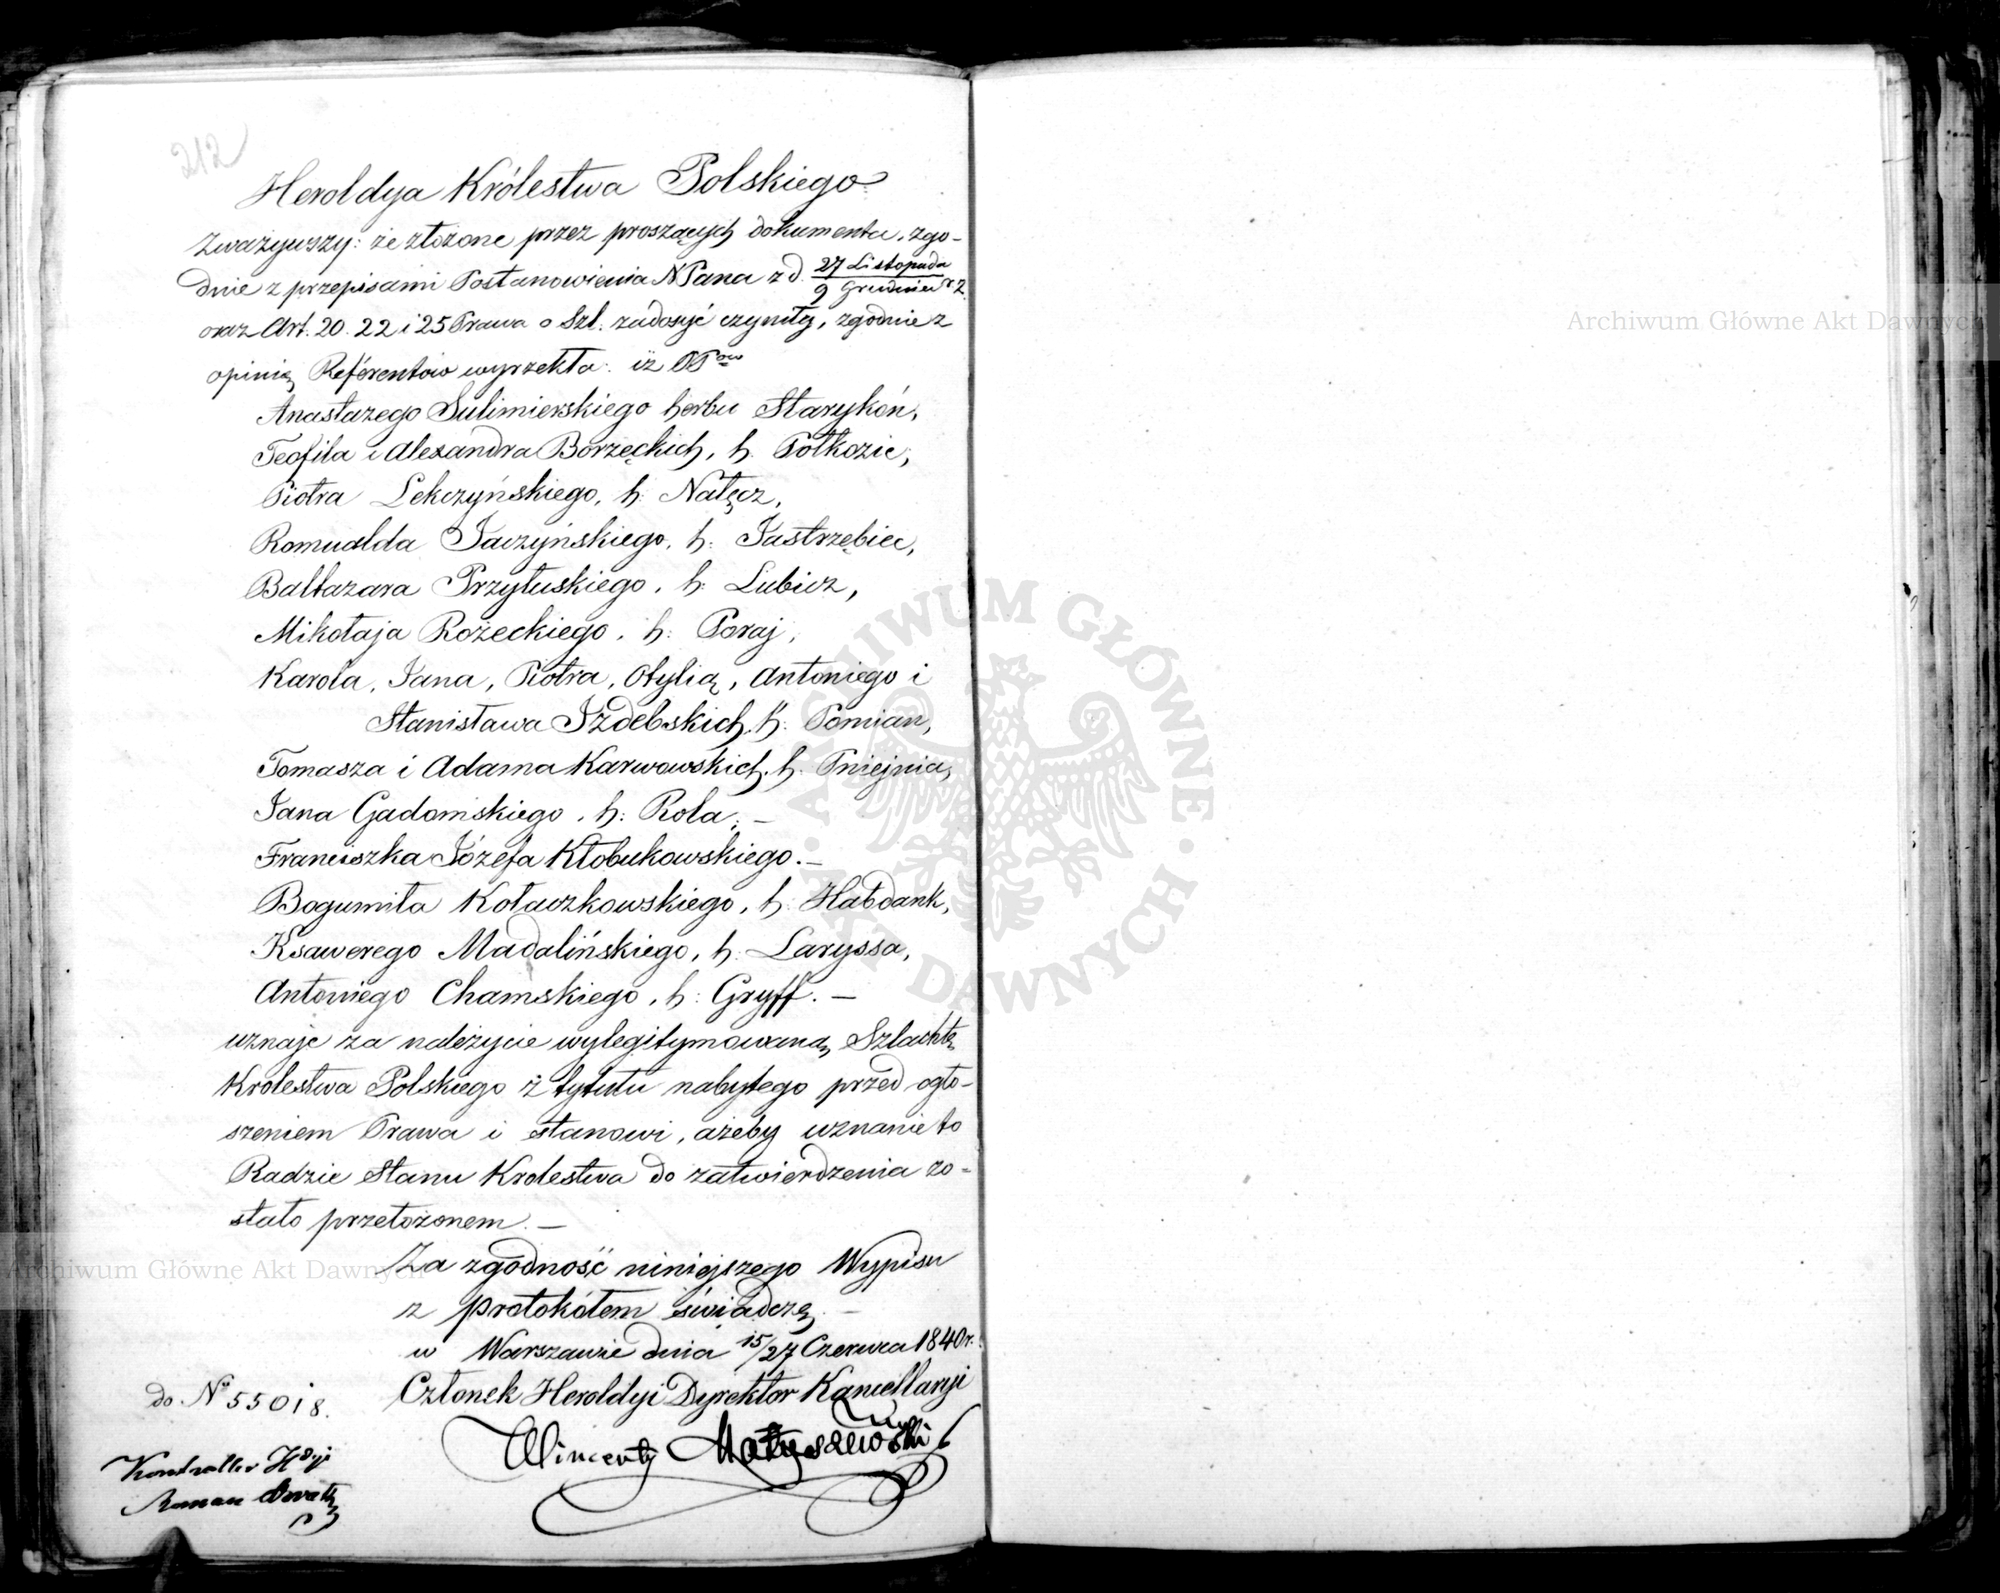 212
Heroldya Królestwa Polskiego
Zważywszy: że złożone przez proszących dokumenta, zgo-
dnie z przepisami Postanowienia N Pana z d. 27 Listopada / 9 Grudnia r. z.
oraz Art. 20. 22 i 25 Prawa o Szl: zadosyć czynią, zgodnie z
opinią Referentów wyrzekła: iż PP
Anastazego Sulimierskiego herbu Starykoń,
Teofila i Alexandra Borzęckich, h. Półkozic,
Piotra Lekczyńskiego, h: Nałęcz,
Romualda Jaczyńskiego, h: Jastrzębiec,
Baltazara Przyłuskiego, h: Lubicz,
Mikołaja Rożeckiego, h: Poraj,
Karola, Jana, Piotra, Otylią, Antoniego i
Stanisława Izdebskich, h: Pomian,
Tomasza i Adama Karwowskich, h. Pniejnia,
Jana Gadomskiego, h: Rola; –
Franciszka Józefa Kłobukowskiego. –
Bogumiła Kołaczkowskiego, h: Habdank,
Ksawerego Madalińskiego, h: Laryssa,
Antoniego Chamskiego, h: Gryff. –
uznaje za należycie wylegitymowaną Szlachtę
Królestwa Polskiego z tytułu nabytego przed ogło-
szeniem Prawa i stanowi, ażeby uznanie to
Radzie Stanu Królestwa do zatwierdzenia zo-
stało przełożonem. –
Za zgodność niniejszego Wypisu
z protokółem świadczę. –
w Warszawie dnia 15/27 Czerwca 1840 r.
Członek Heroldyi Dyrektor Kancellaryi
Wincenty Matuszewski
do N 55018.
Kontroller Hdyi
Roman
Archiwum Główne Akt Dawnych
Archiwum Główne Akt Dawnych
ARCHIWUM GŁÓWNE · AKT DAWNYCH ·